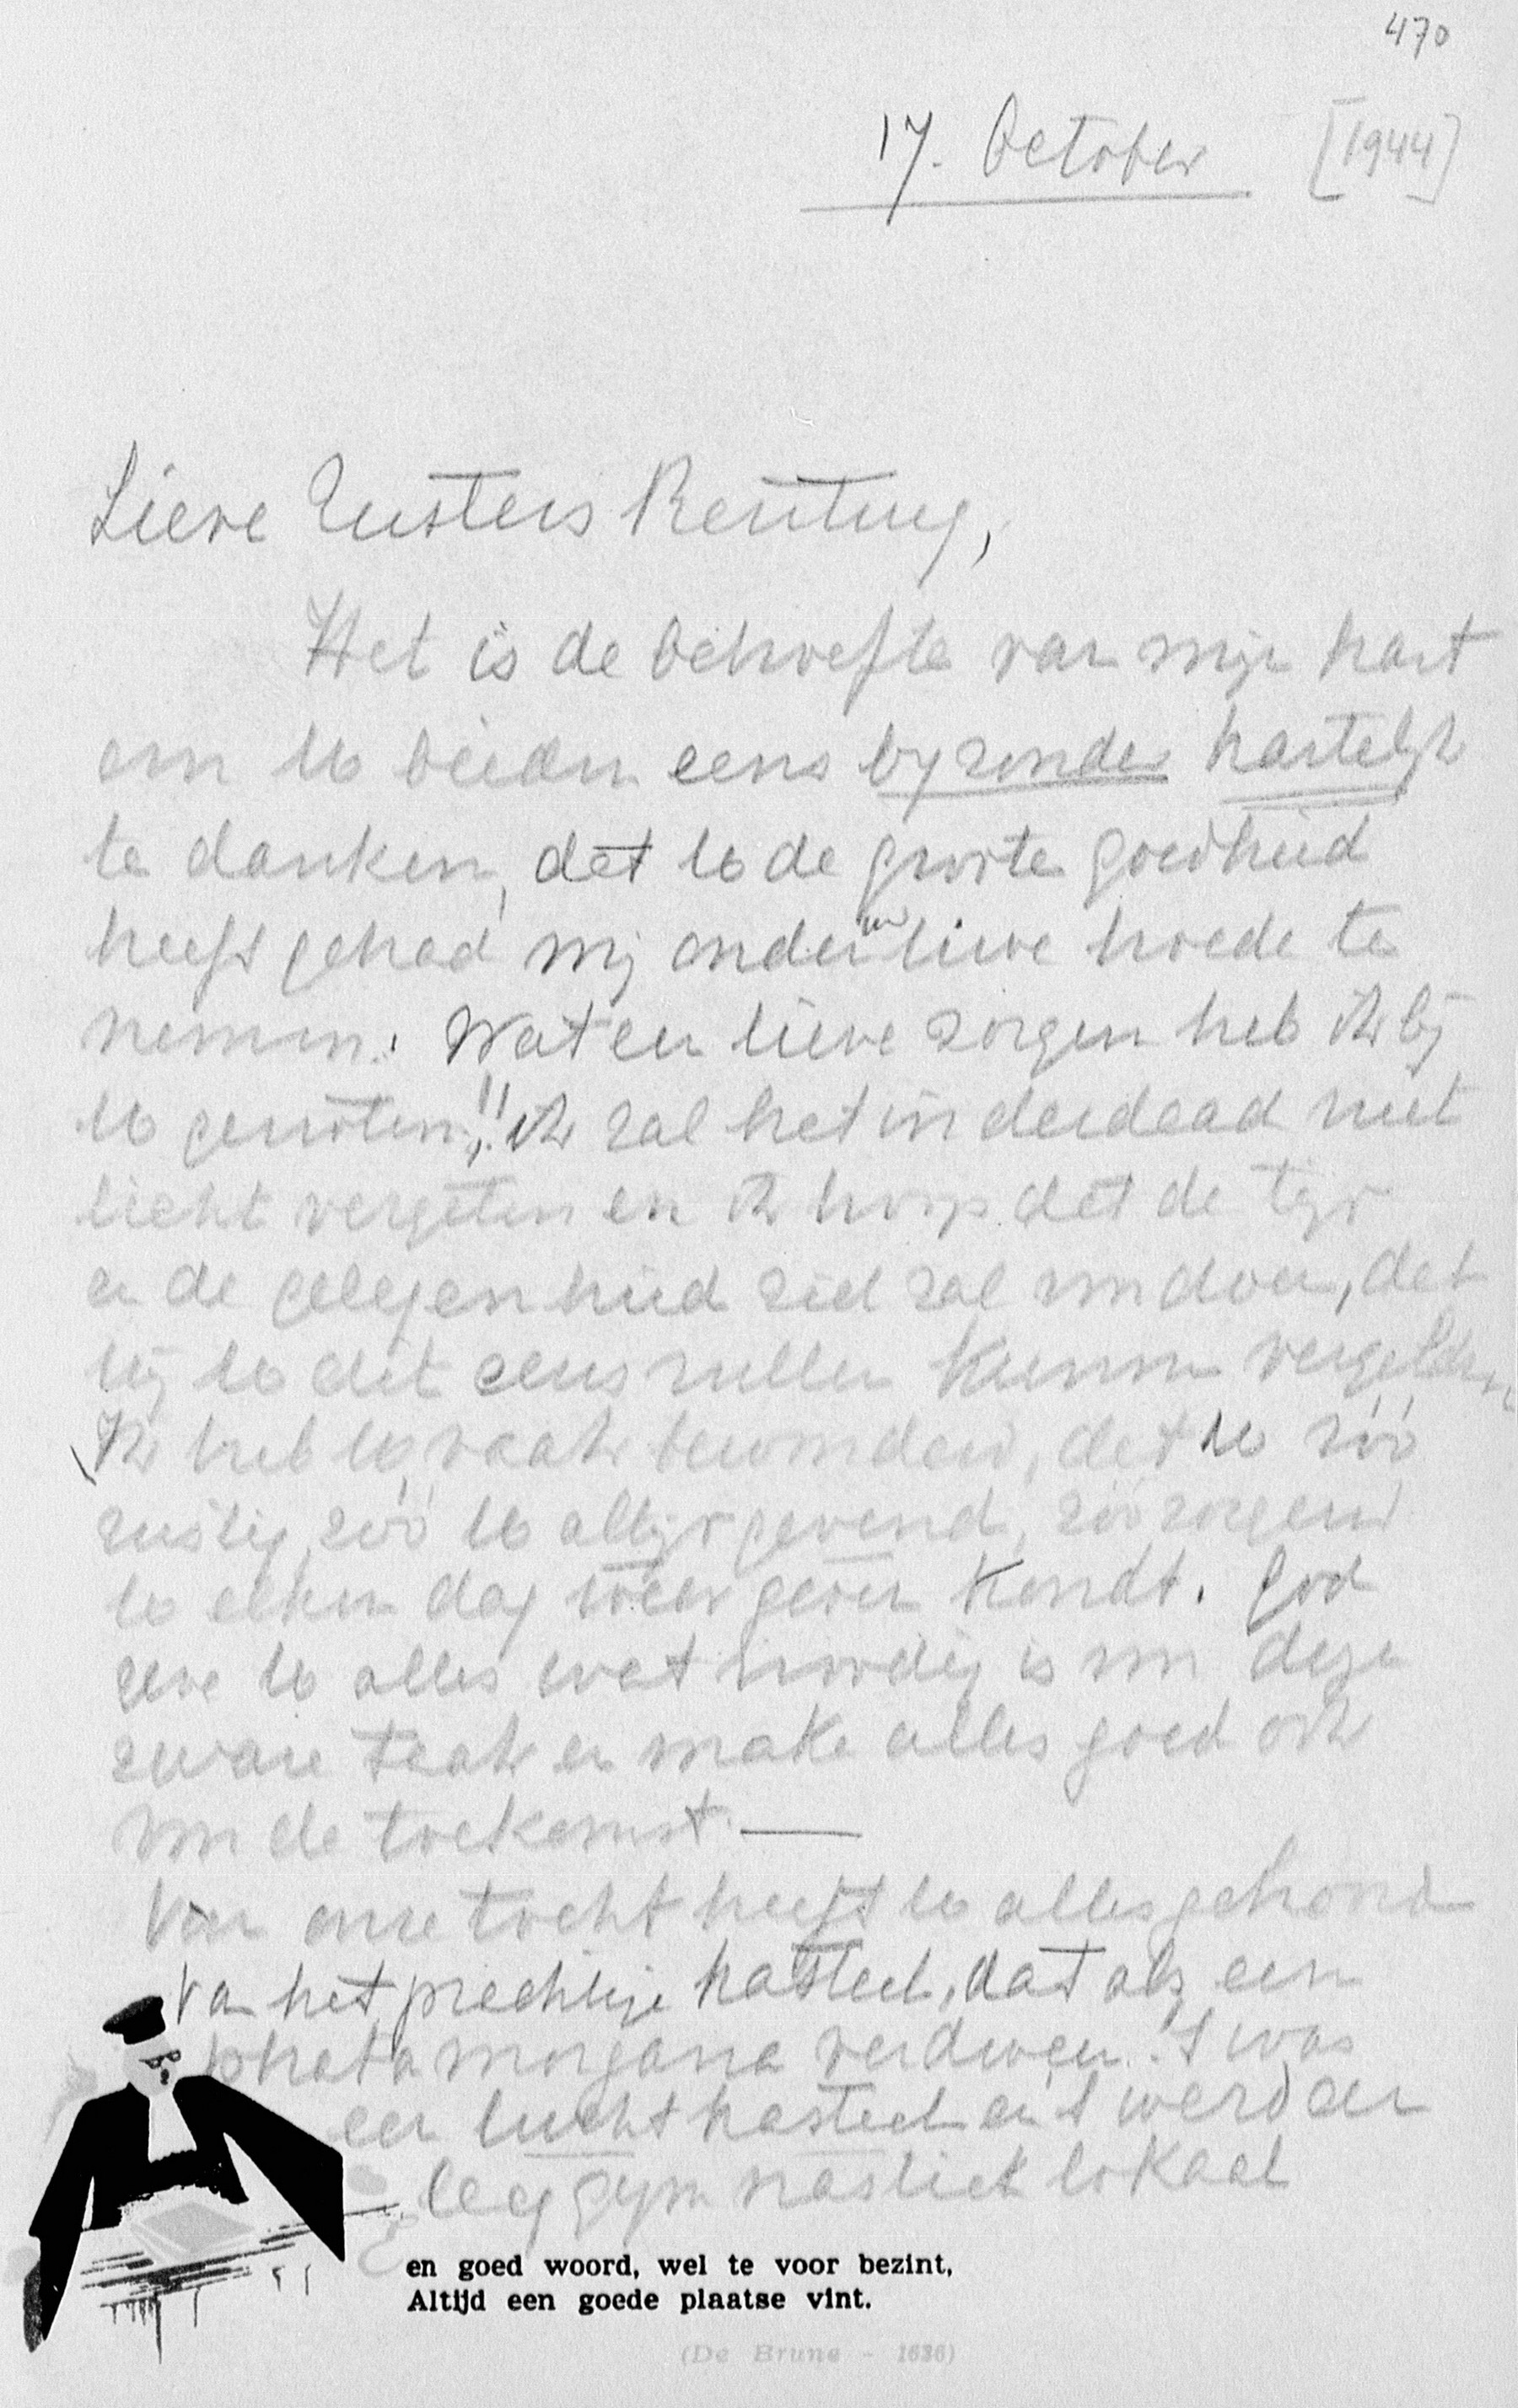 470
17. October [1944]
Lieve Zusters Reuting,
Het is de behoefte van mijn hart
om U beiden eens byzonder hartelijk
te danken, dat U de groote goedheid
heeft gehad mij onder uw lieve hoede te
nemen. Wat een lieve zorgen heb ik bij
U genoten!! ik zal het inderdaad niet
licht vergeten en ik hoop dat de tijd
en de gelegenheid zich zal voordoen, dat
wij U dit eens zullen kunnen vergelden
Ik heb U vaak bewonderd, dat U zóó
rustig, zóó U altijd gevend, zóó zorgend
U elken dag weer geven kondt. God
geve U alles wat noodig is voor deze
zware taak en make alles goed ook
voor de toekomst. —
Van onze tocht heeft U alles gehoord
van het prachtige kasteel, dat als een
phata morgana verdween. 't was
een luchtkasteel en 't werd een
leeg gymnastiek lokaal
en goed woord, wel te voor bezint,
Altijd een goede plaatse vint.
(De Brune - 1636)